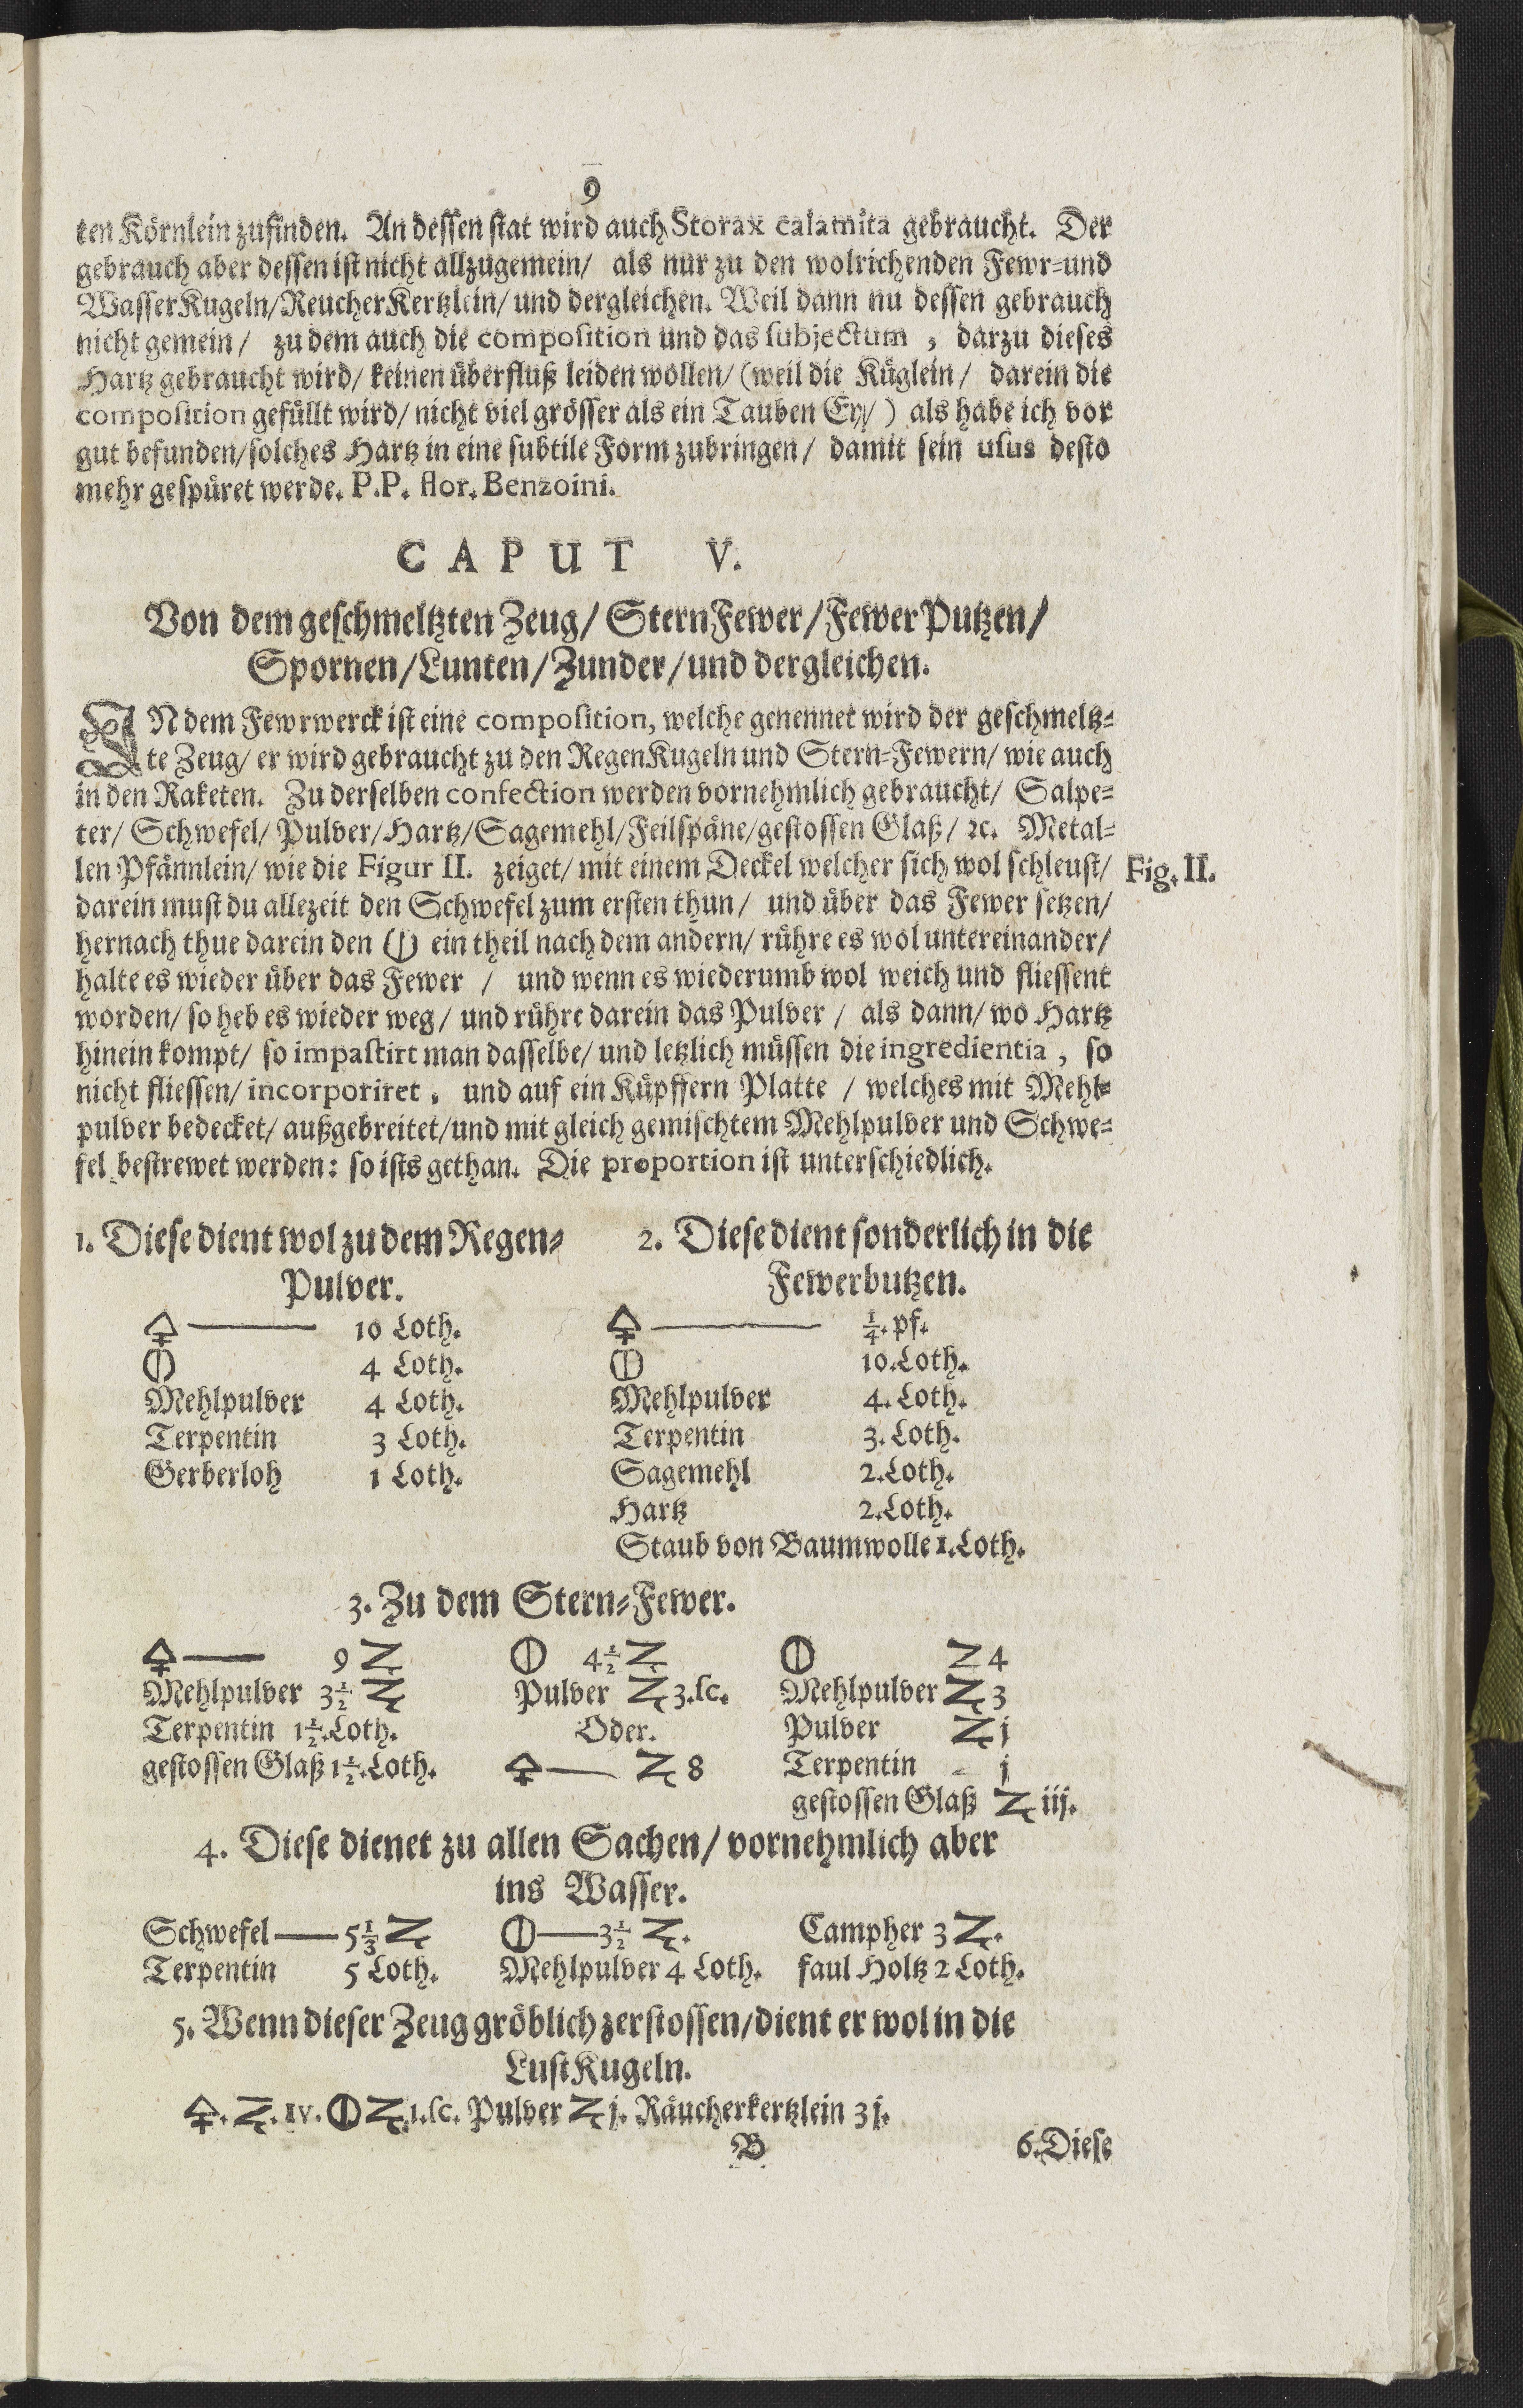 9
ten Körnlein zufinden. An dessen stat wird auch Storax calamita gebraucht. Der
gebrauch aber dessen ist nicht allzugemein/ als nur zu den wolrichenden Fewr-und
WasserKugeln/ReucherKertzlein/ und dergleichen. Weil dann nu dessen gebrauch
nicht gemein/ zu dem auch die composition und das subjectum, darzu dieses
Hartz gebraucht wird/ keinen überfluß leiden wollen/ (weil die Küglein/ darein die
composition gefüllt wird/ nicht viel grösser als ein Tauben Ey/) als habe ich vor
gut befunden/solches Hartz in eine subtile Form zubringen/ damit sein usus desto
mehr gespüret werde. P.P. flor. Benzoini.
CAPUT V.
Von dem geschmeltzten Zeug/ SternFewer/FewerPutzen/
Spornen/Lunten/Zunder/und dergleichen.
IN dem Fewrwerck ist eine composition, welche genennet wird der geschmeltz-
te Zeug/ er wird gebraucht zu den RegenKugeln und Stern-Fewern/ wie auch
in den Raketen. Zu derselben confection werden vornehmlich gebraucht/ Salpe-
ter/ Schwefel/ Pulver/Hartz/Sagemehl/Feilspäne/gestossen Glaß/ ꝛc. Metal-
len Pfännlein/ wie die Figur II. zeiget/ mit einem Deckel welcher sich wol schleust/
Fig. II.
darein must du allezeit den Schwefel zum ersten thun/ und über das Fewer setzen/
hernach thue darein den ⦶ ein theil nach dem andern/ rühre es wol untereinander/
halte es wieder über das Fewer / und wenn es wiederumb wol weich und fliessent
worden/ so heb es wieder weg/ und rühre darein das Pulver / als dann/ wo Hartz
hinein kompt/ so impastirt man dasselbe/ und letzlich müssen die ingredientia, so
nicht fliessen/ incorporiret, und auf ein Küpffern Platte / welches mit Mehl-
pulver bedecket/ außgebreitet/und mit gleich gemischtem Mehlpulver und Schwe-
fel bestrewet werden: so ists gethan. Die proportion ist unterschiedlich.
1. Diese dient wol zu dem Regen-
Pulver.
🜍 — 10 Loth.
⦶ 4 Loth.
Mehlpulver 4 Loth.
Terpentin 3 Loth.
Gerberloh 1 Loth.
2. Diese dient sonderlich in die
Fewerbutzen.
🜍 — 1/4. pf.
⦶ 10. Loth.
Mehlpulver 4. Loth.
Terpentin 3. Loth.
Sagemehl 2. Loth.
Hartz 2. Loth.
Staub von Baumwolle 1. Loth.
3. Zu dem Stern-Fewer.
🜍 — 9 ℥ ⦶ 4 1/2 ℥ ⦶ ℥ 4
Mehlpulver 3 1/2 ℥ Pulver ℥ 3. sc. Mehlpulver ℥ 3
Terpentin 1 1/2. Loth. Oder. Pulver ℥ j
gestossen Glaß 1 1/2. Loth. 🜍 — ℥ 8 Terpentin - j
gestossen Glaß ℥ iij.
4. Diese dienet zu allen Sachen/ vornehmlich aber
ins Wasser.
Schwefel — 5 1/3 ℥ ⦶ — 3 1/2 ℥. Campher 3 ℥.
Terpentin 5 Loth. Mehlpulver 4 Loth. faul Holtz 2 Loth.
5. Wenn dieser Zeug gröblich zerstossen/dient er wol in die
LustKugeln.
🜍. ℥. IV. ⦶ ℥. 1. sc. Pulver ℥ j. Räucherkertzlein 3 j.
B
6. Diese